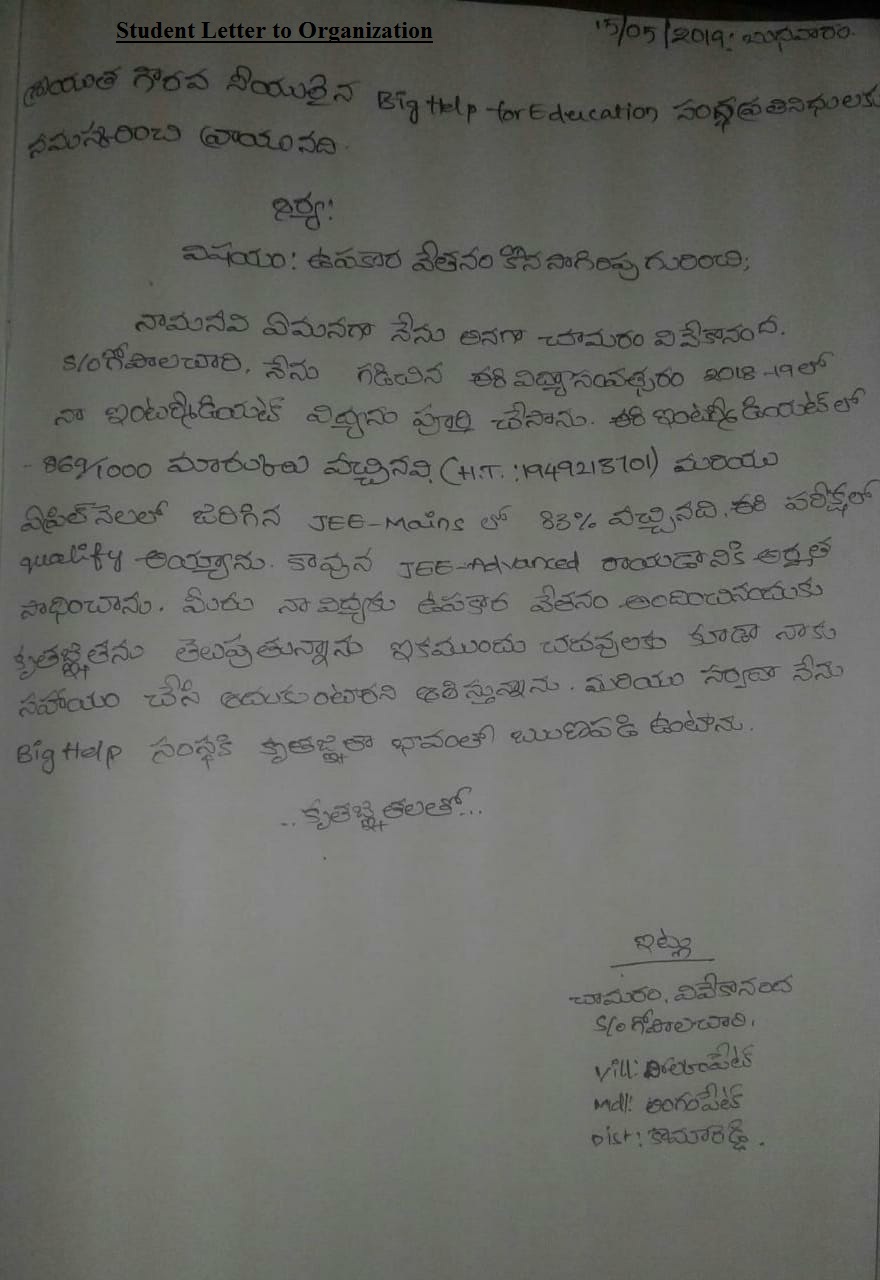 Student Letter to Organization
15/05/2019: బుధవారం.
శ్రీయుత గౌరవ నీయులైన Big Help for Education సంస్థ ప్రతినిధులకు
నమస్కరించి వ్రాయునది.
ఆర్యా!
విషయం: ఉపకార వేతనం కొనసాగింపు గురించి;
నామనవి ఏమనగా నేను అనగా చామరం వివేకానంద.
S/o గోపాలచారి, నేను గడిచిన ఈ విద్యాసంవత్సరం 2018-19 లో
నా ఇంటర్మీడియట్ విద్యను పూర్తి చేసాను. ఈ ఇంటర్మీడియట్ లో
869/1000 మారుకులు వచ్చినవి. (H.T.: 1949213701) మరియు
ఏప్రిల్ నెలలో జరిగిన JEE-Mains లో 83% వచ్చినది. ఈ పరీక్షలో
qualify అయ్యాను. కావున JEE-Advanced రాయడానికి అర్హత
సాధించాను. మీరు నా విద్యకు ఉపకార వేతనం అందించినందుకు
కృతజ్ఞతను తెలుపుతున్నాను ఇకముందు చదువులకు కూడా నాకు
సహాయం చేసి ఆదుకుంటారని ఆశిస్తున్నాను. మరియు సర్వదా నేను
Big Help సంస్థకి కృతజ్ఞతా భావంతో ఋణపడి ఉంటాను.
..కృతజ్ఞతలతో...
ఇట్లు
చామరం. వివేకానంద
S/o గోపాలచారి.
Vill:
Mdl: లింగంపేట్
Dist: కామారెడ్డి.